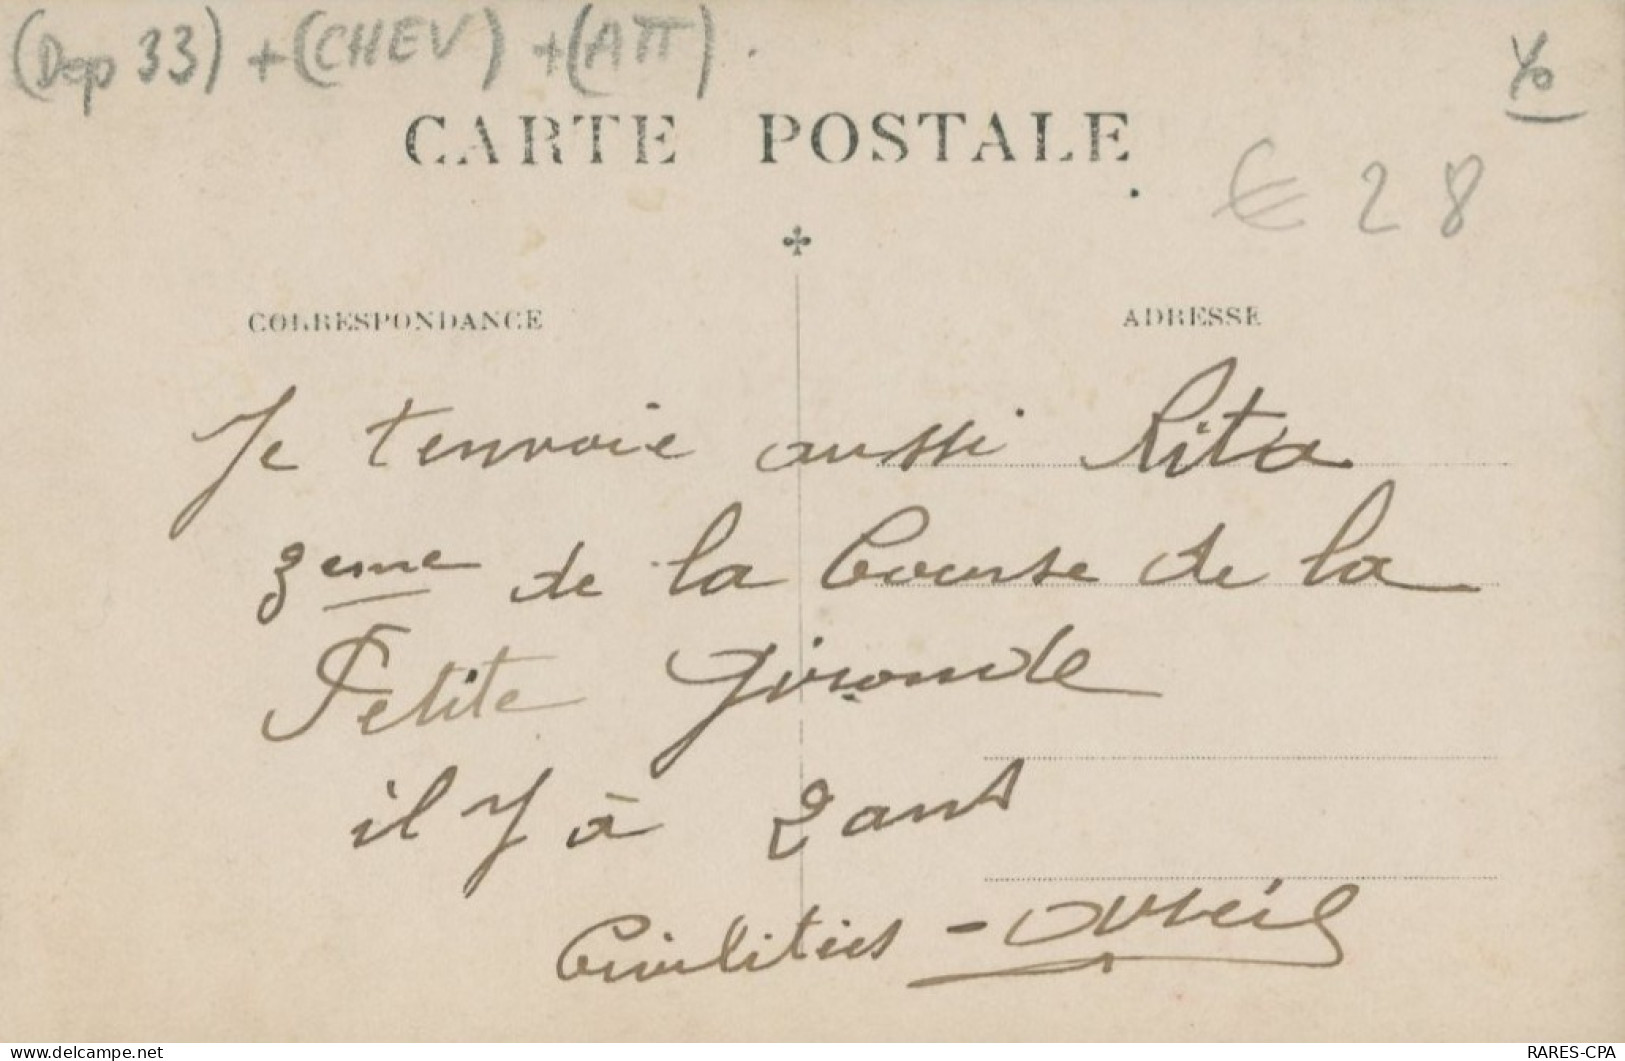 (Dep 33) + (CHEV) + (ATT).
CARTE POSTALE
€ 28
CORRESPONDANCE
ADRESSE
Je t'envoie aussi Rita
3eme de la Course de la
Petite Gironde
il y à 2 ans
Civilitiés -
delcampe.net
RARES-CPA